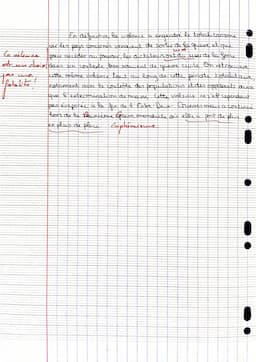 En définitive, la violence a engendré le totalitarisme
car les pays concernés venaient de sortir de la guerre et que
pour accéder au pouvoir, les dictateurs ont du user de la force
dans un contexte bien souvent de guerre civile. On retrouve
cette même violence tout au long de cette période totalitaire
notamment avec le contrôle des populations et des opposants ainsi
que l'extermination de masse. Cette violence ne s'est cependant
pas à la fin de l'Entre-Deux-Guerres mais a continué
lors de la Deuxième Guerre mondiale où elle a pris de plus
en plus de place.
La violence
est une
pas une
fatalité !